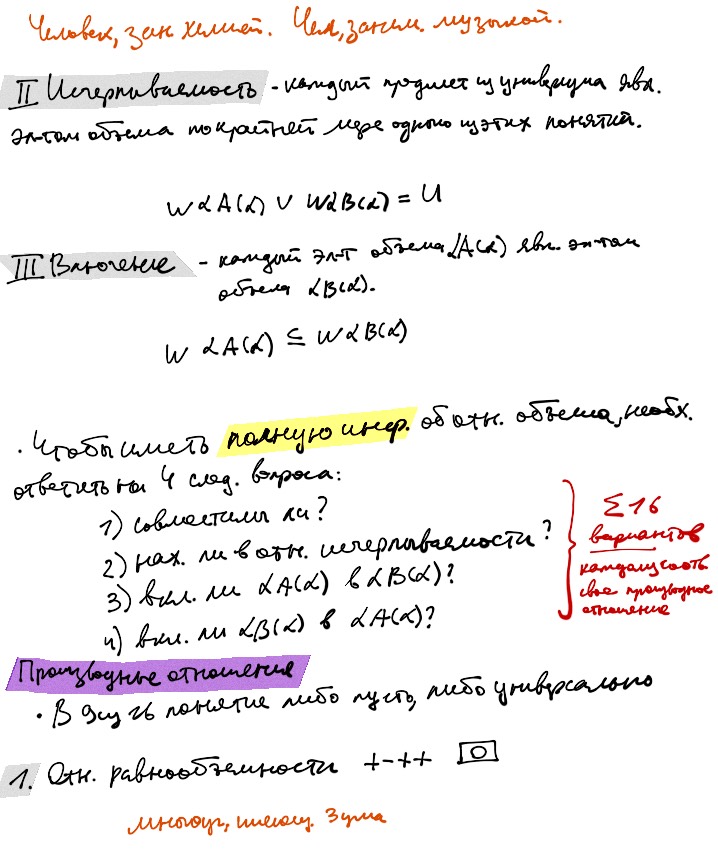 Человек, зан химией. Чел, заним. музыкой.
II Исчерпываемость - каждый предмет из универсума явл.
эл-том объема по крайней мере одного из этих понятий.
WαA(α) ∪ WαB(α) = U
III Включение - каждый эл-т объема αA(α) явл. эл-том
объема αB(α).
WαA(α) ⊆ WαB(α)
· Чтобы иметь полную инфор. об отн. объема, необх.
ответить на 4 след. вопроса:
1) совместимы ли?
2) нах. ли в отн. исчерпываемости?
3) вкл. ли αA(α) в αB(α)?
4) вкл. ли αB(α) в αA(α)?
Σ16
вариантов
каждому соотв
свое производное
отношение
Производные отношения
· В 9 из 16 понятие либо пусто, либо универсально
1. Отн. равнообъемности +-++
многоуг, имеющ. 3 угла